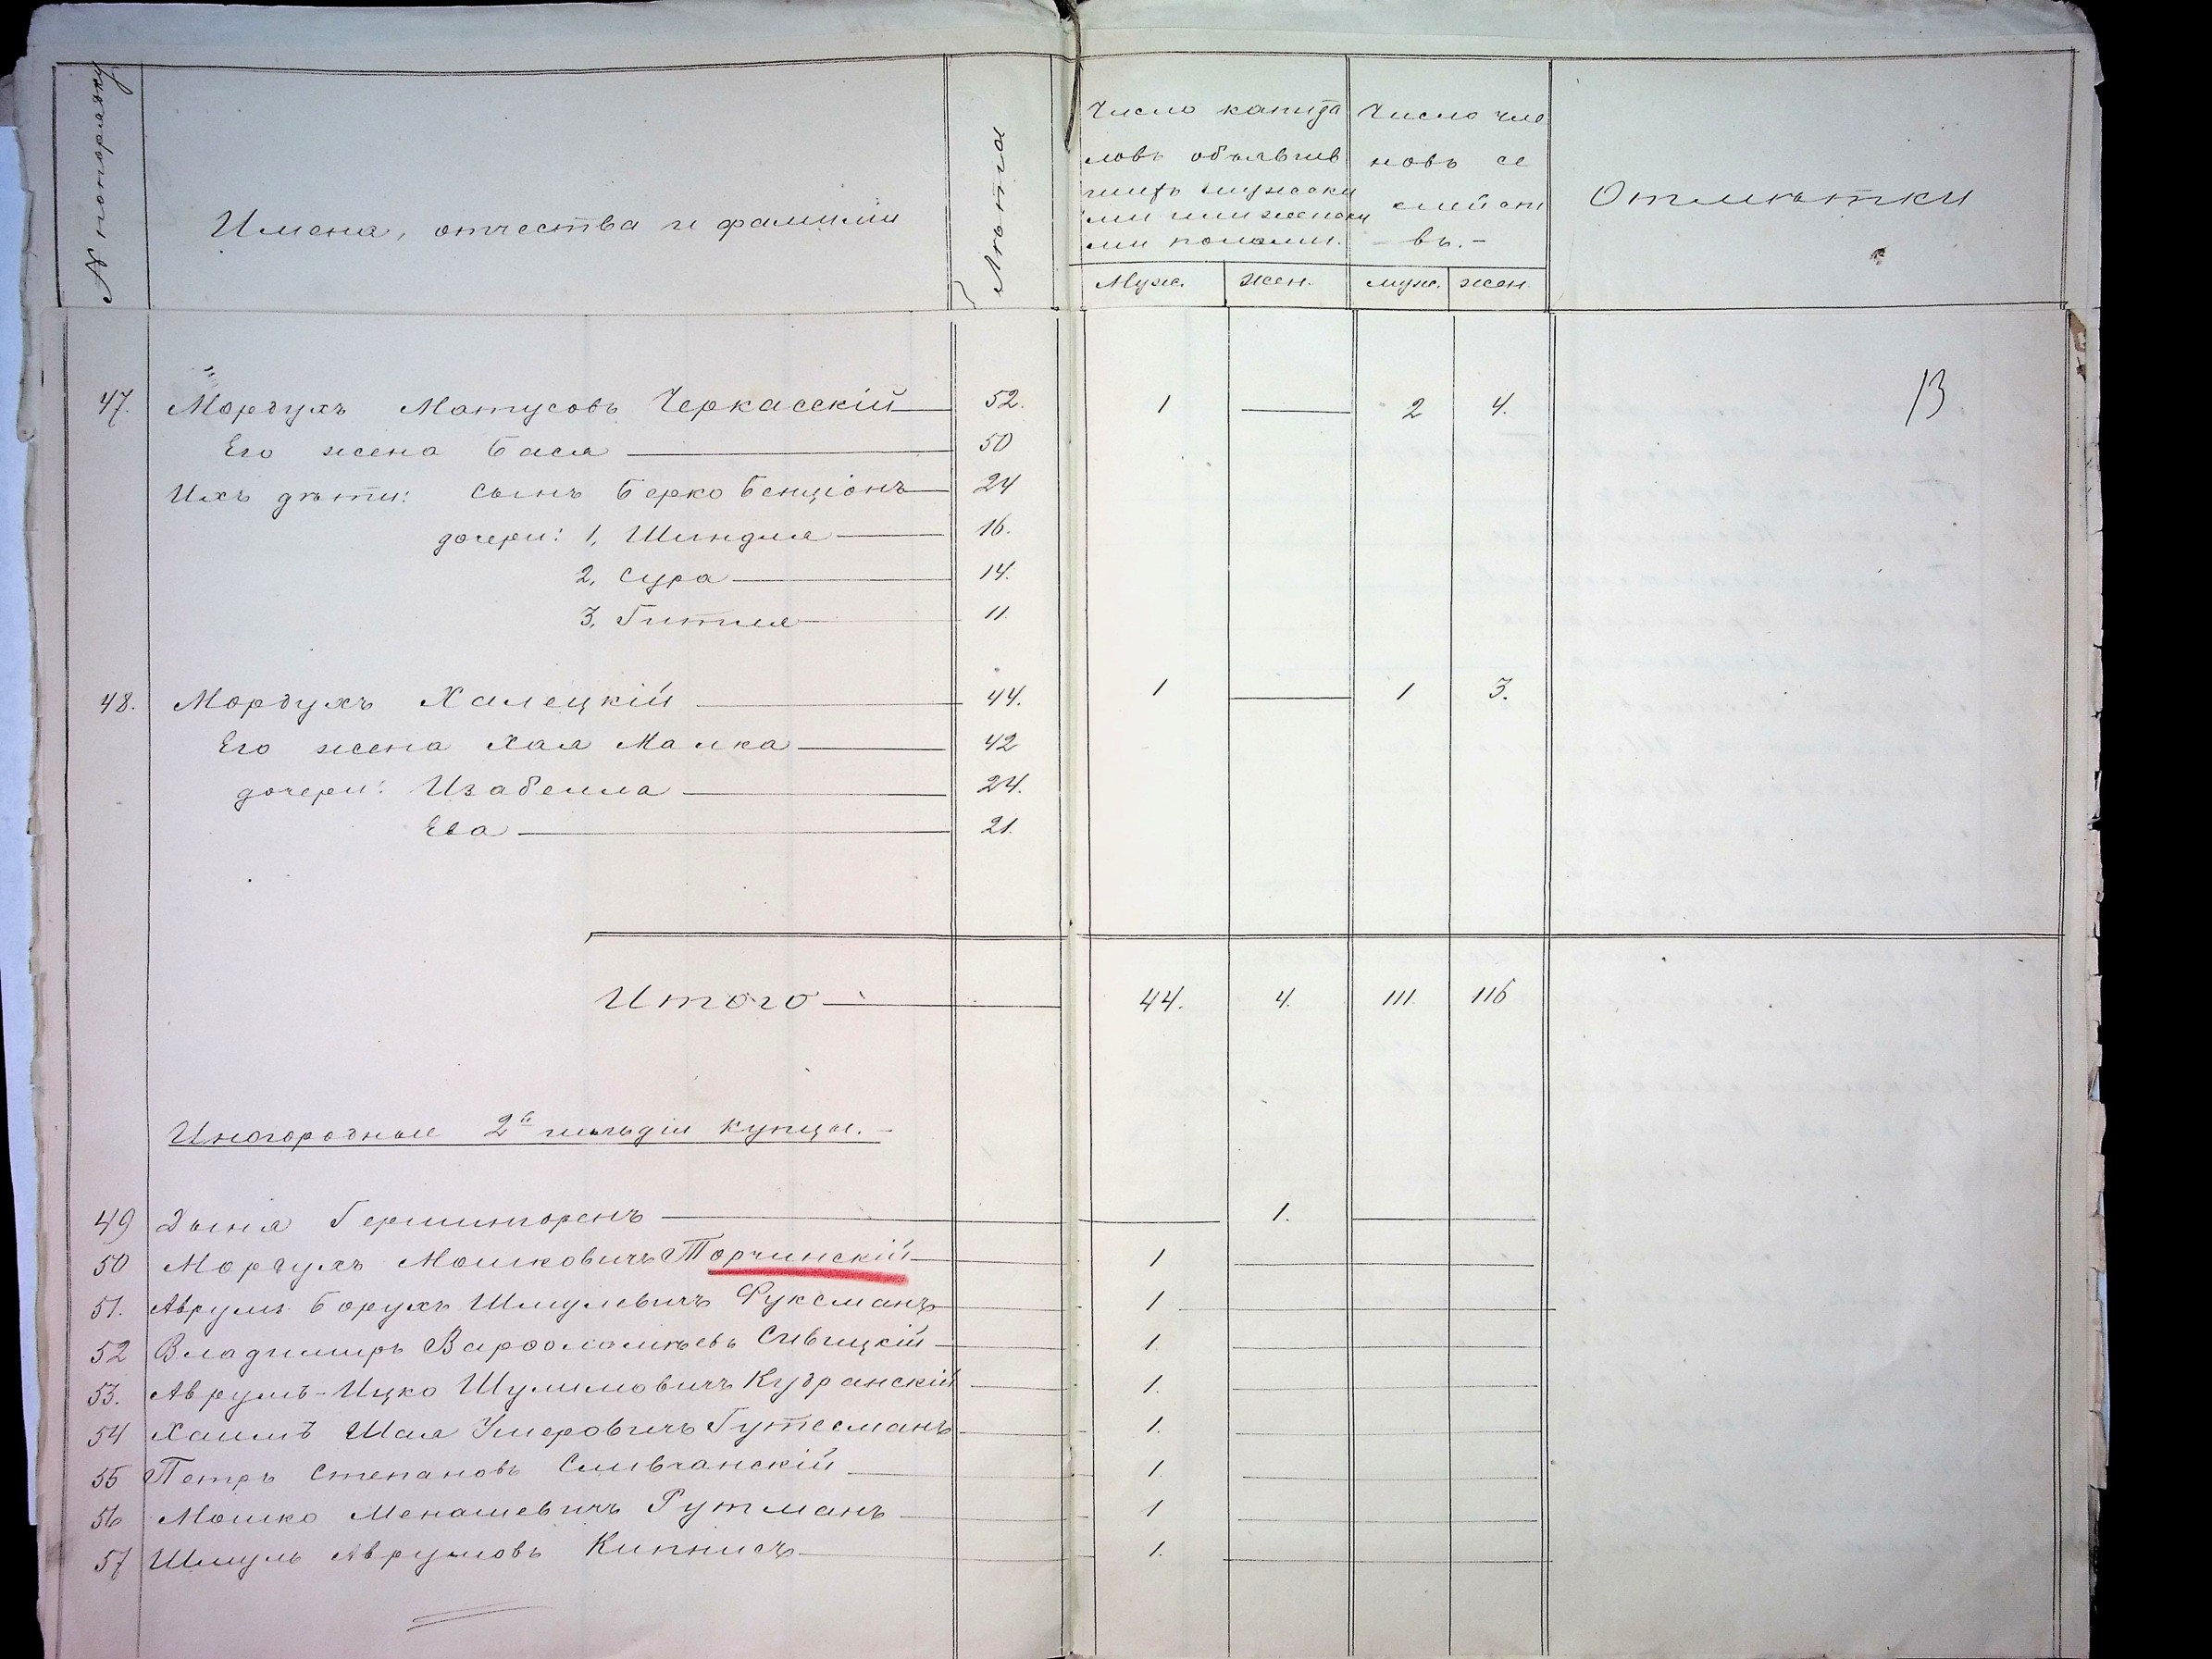 № по порядку
Имена, отчества и фамиліи
Лѣта
Число капита
ловъ объявлен
ныхъ мужски
ми или женски
ми полами.
Число чле
новъ се
мейст
въ.-
Отмѣтки
Муж. жен. муж. жен.
13
47. Мордухъ Матусовъ Черкасскій 52. 1 2 4.
Его жена Бася 50
Ихъ дѣти: сынъ Берко Бенціонъ 24
дочери: 1, Шендля 16.
2, Сура 14.
3, Гитля 11.
48. Мордухъ Халецкій 44. 1 1 3.
Его жена Хая Малка 42
дочери: Изабелла 24.
Ева 21.
Итого 44. 4. 111. 116
Иногородные 2й гильдіи купцы.-
49 1.
50 Мордухъ Мошковичъ Торчинскій 1
51. Аврумъ Борухъ Шмулевичъ Фуксманъ 1
52 Владимиръ Варфоломѣевъ Сивицкій 1
53. Аврумъ-Ицко Шулимовичъ Кудранскій 1.
54 Хаимъ Шая Гутесманъ 1.
55 Петръ Степановъ 1.
56 Мошко Менашевичъ Рутманъ 1
57 Шмуль Аврумовъ Кипнисъ 1.